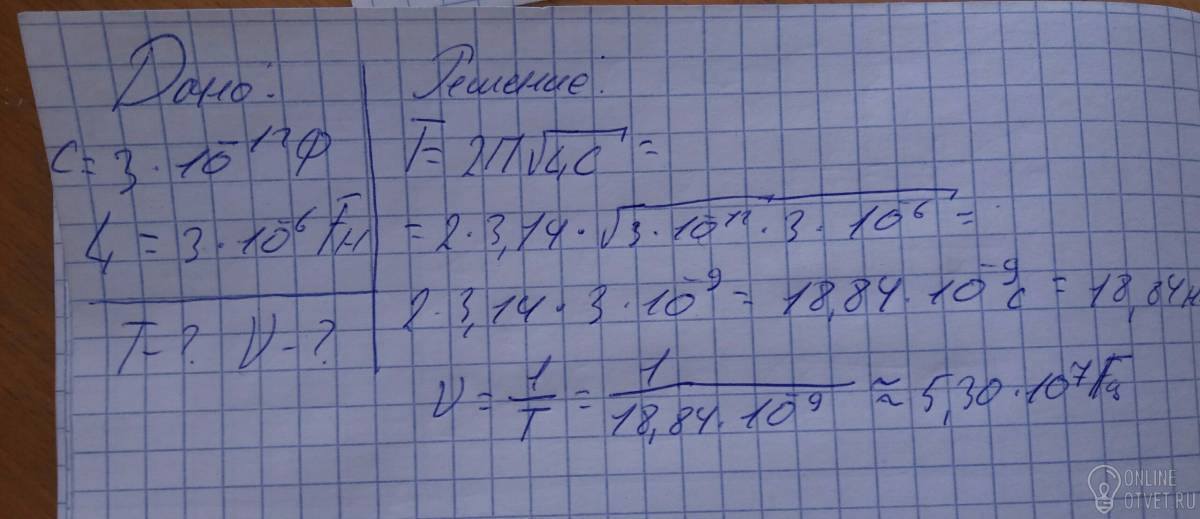 Дано:
C = 3 · 10⁻¹² Ф
L = 3 · 10⁻⁶ Гн
T - ? ν - ?
Решение:
T = 2π√L,C =
= 2 · 3,14 · √3 · 10⁻¹² · 3 · 10⁻⁶ =
2 · 3,14 · 3 · 10⁻⁹ = 18,84 · 10⁻⁹ с = 18,84 н
ν = 1/T = 1/18,84 · 10⁻⁹ ≈ 5,30 · 10⁷ Гц
ONLINE
OTVET.RU